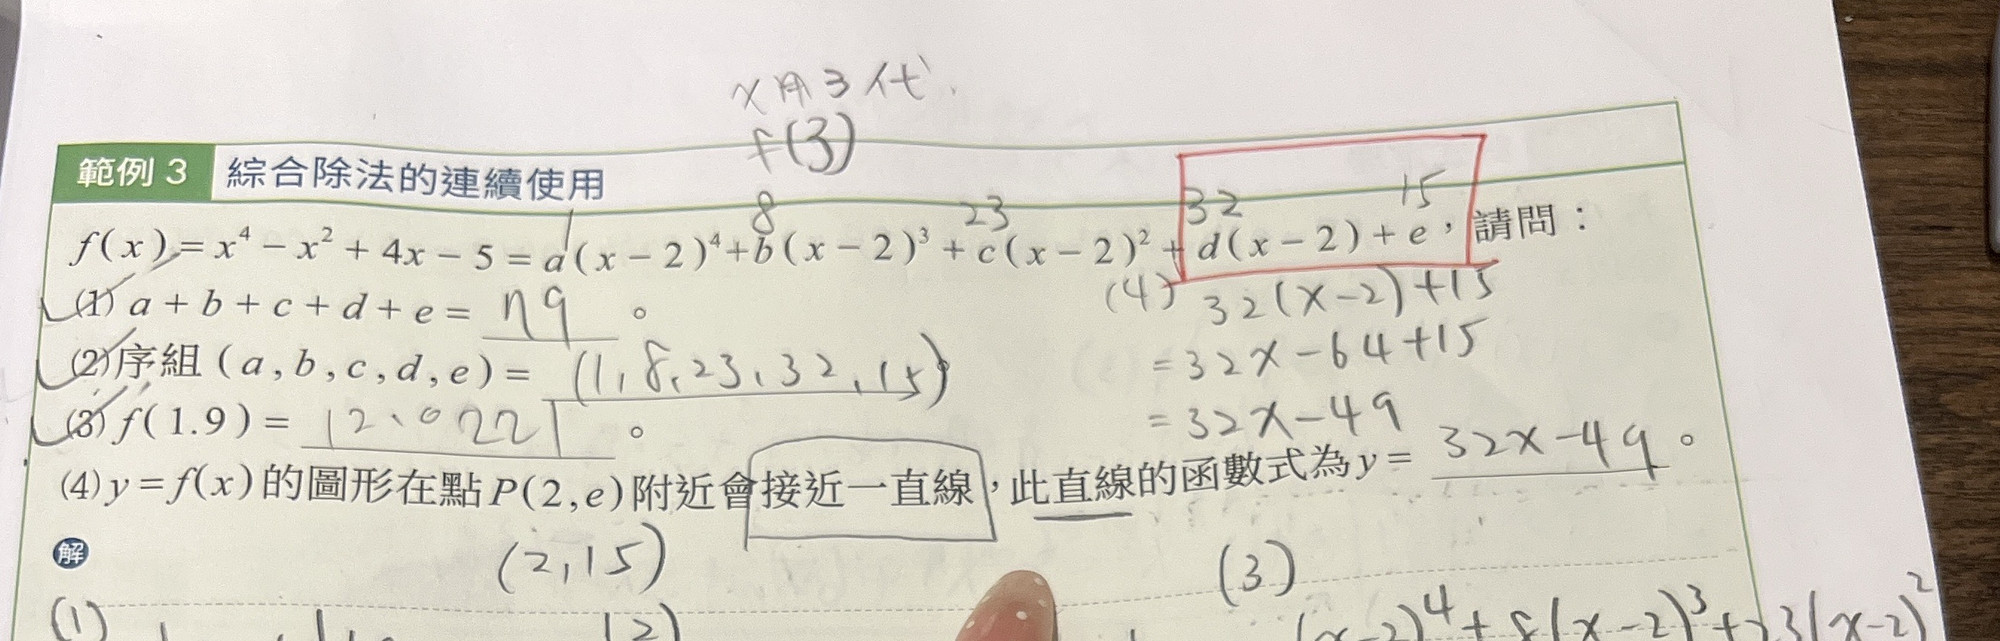 x用3代.
f(3)
範例 3 綜合除法的連續使用
1 8 23 32 15
f(x) = x⁴ − x² + 4x − 5 = a(x − 2)⁴ + b(x − 2)³ + c(x − 2)² + d(x − 2) + e，請問：
(1) a + b + c + d + e = 79 。
(4) 32(x−2)+15
(2) 序組 (a, b, c, d, e) = (1, 8, 23, 32, 15)
= 32x−64+15
(3) f(1.9) = 12.0221 。
= 32x−49
(4) y = f(x) 的圖形在點 P(2, e) 附近會接近一直線，此直線的函數式為 y = 32x−49 。
解
(2,15)
(3)
(1)
(2)
(x−2)⁴+8(x−2)³+23(x−2)²